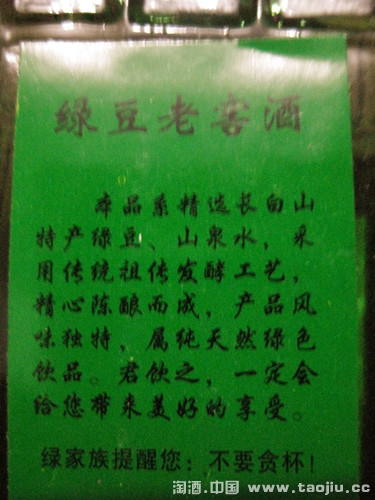 绿豆老窖酒
本品系精选长白山
特产绿豆、山泉水，采
用传统祖传发酵工艺，
精心陈酿而成，产品风
味独特，属纯天然绿色
饮品。君饮之，一定会
给您带来美好的享受。
绿家族提醒您：不要贪杯！
淘酒.中国 www.taojiu.cc